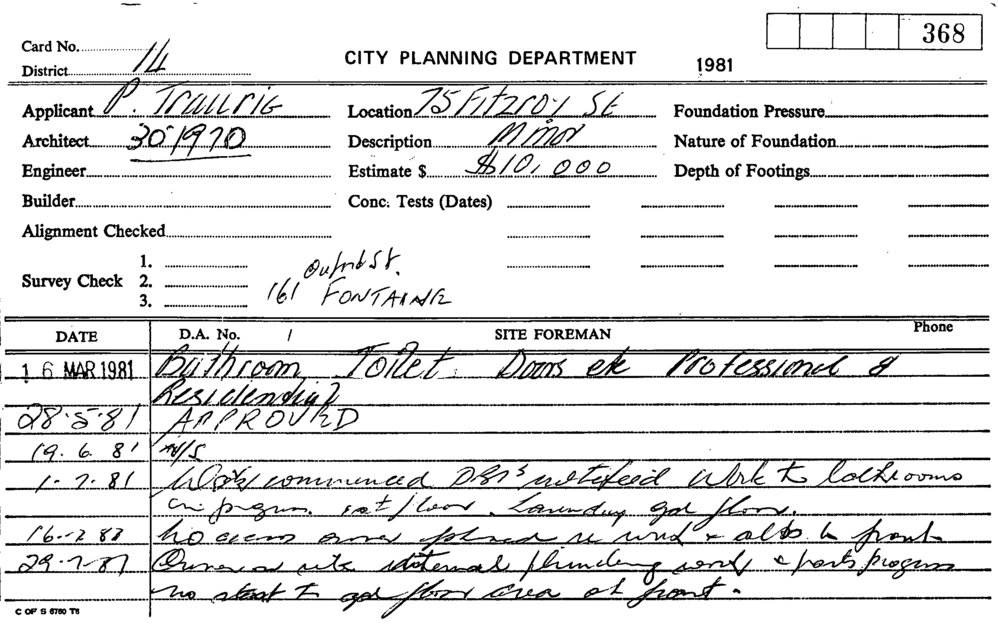 368
Card No.
District 14
CITY PLANNING DEPARTMENT
1981
Applicant P. Traurig
Location 75 Fitzroy St
Foundation Pressure
Architect 301970
Description Minor
Nature of Foundation
Engineer
Estimate $ $10,000
Depth of Footings
Builder
Conc. Tests (Dates)
Alignment Checked
Survey Check 1.
2.
3.
161 FONTAINE
DATE D.A. No. / SITE FOREMAN Phone
16 MAR 1981 Bathroom Toilet Doors etc Professional &
Residential
28.5.81 APPROVED
19.6.81 N/S
1-7.81 Work commenced notified work to bathrooms
in progress. 1st floor. Laundry gd floor.
no access owner phoned re work & alts. to front
internal plumbing work progress
no start to gd floor area at front.
C OF S 6760 T6